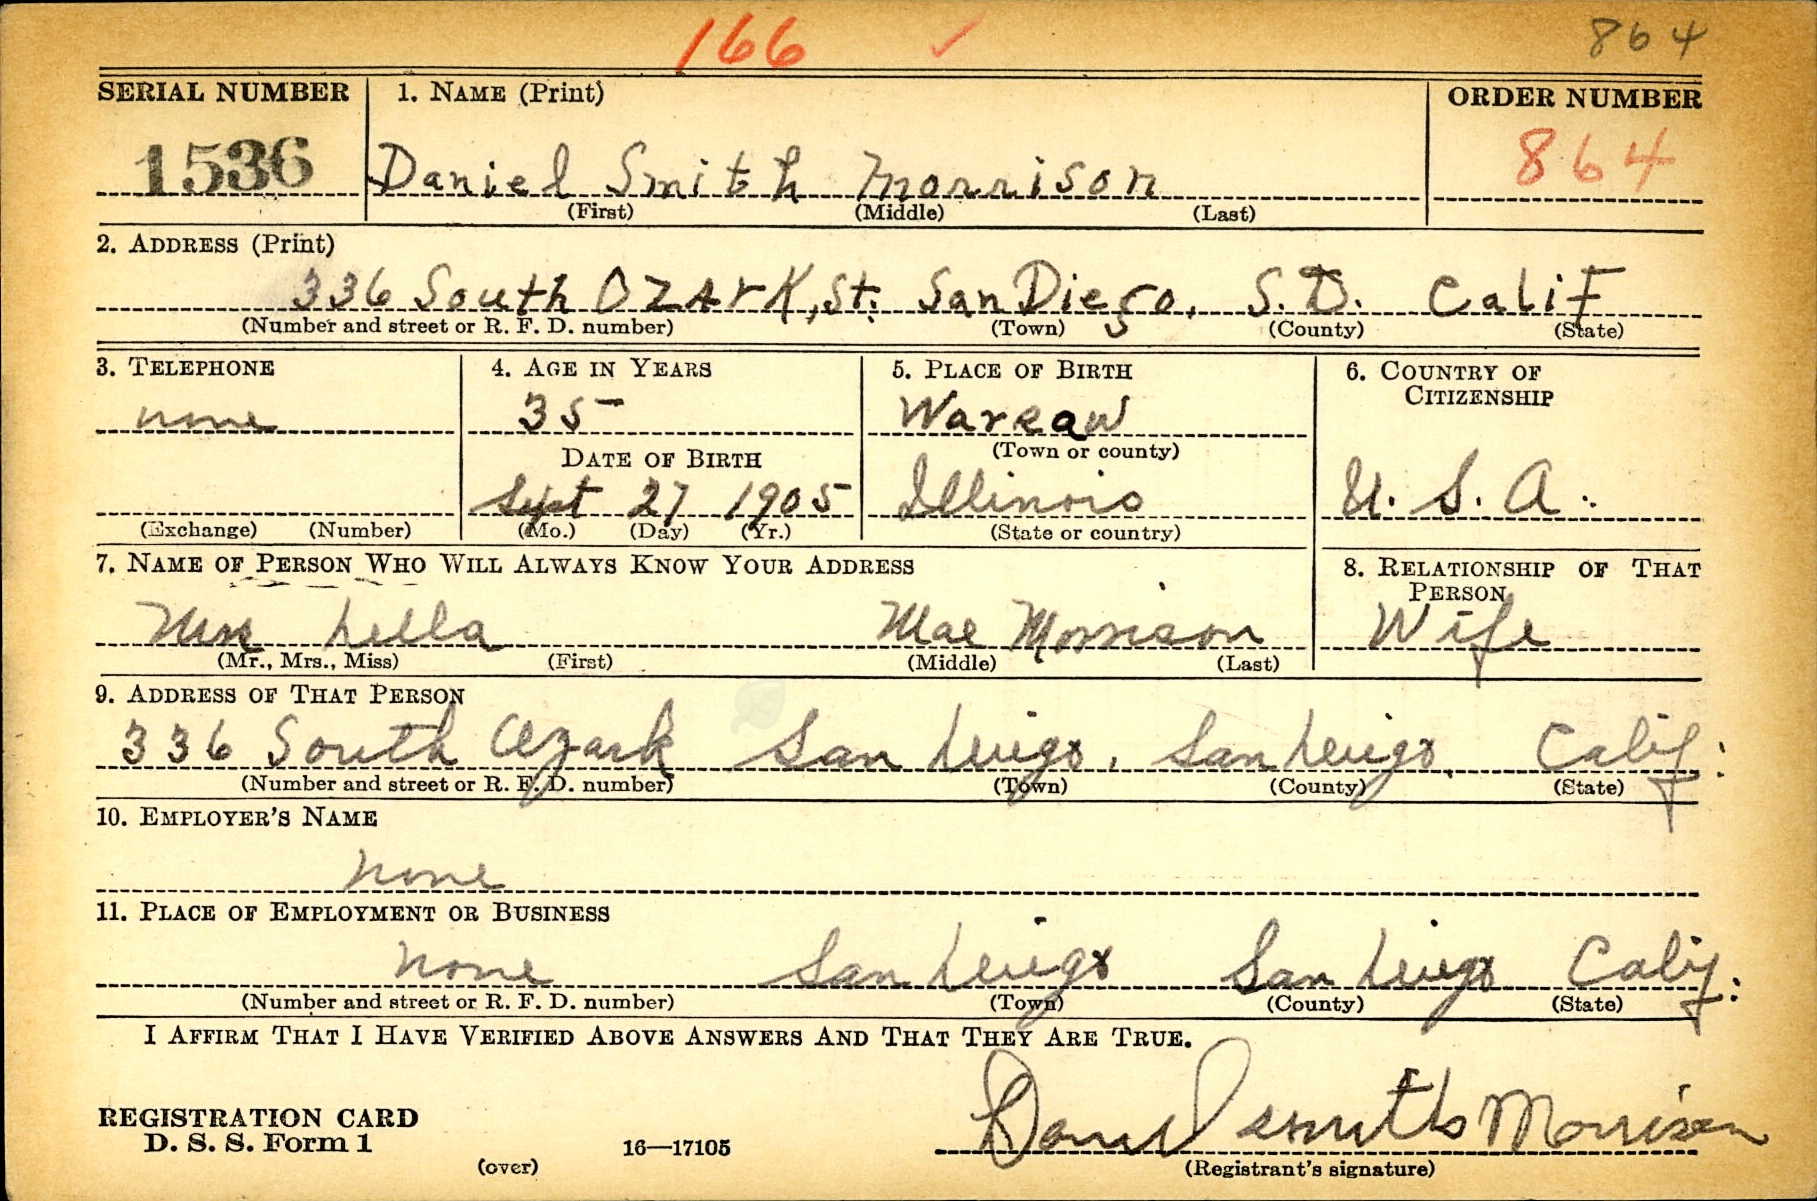 166 ✓ 864
SERIAL NUMBER 1. NAME (Print) ORDER NUMBER
1536 Daniel Smith Morrison 864
(First) (Middle) (Last)
2. ADDRESS (Print)
336 South OZArK, St. San Diego, S.D. Calif
(Number and street or R. F. D. number) (Town) (County) (State)
3. TELEPHONE 4. AGE IN YEARS 5. PLACE OF BIRTH 6. COUNTRY OF CITIZENSHIP
none 35 Warsaw
DATE OF BIRTH (Town or county)
Sept 27 1905 Illinois U. S. A.
(Exchange) (Number) (Mo.) (Day) (Yr.) (State or country)
7. NAME OF PERSON WHO WILL ALWAYS KNOW YOUR ADDRESS 8. RELATIONSHIP OF THAT PERSON
Mrs Lella Mae Morrison Wife
(Mr., Mrs., Miss) (First) (Middle) (Last)
9. ADDRESS OF THAT PERSON
336 South Ozark San Diego, San Diego, Calif.
(Number and street or R. F. D. number) (Town) (County) (State)
10. EMPLOYER'S NAME
none
11. PLACE OF EMPLOYMENT OR BUSINESS
none San Diego San Diego Calif.
(Number and street or R. F. D. number) (Town) (County) (State)
I AFFIRM THAT I HAVE VERIFIED ABOVE ANSWERS AND THAT THEY ARE TRUE.
Daniel Smith Morrison
REGISTRATION CARD
D. S. S. Form 1 16—17105
(over) (Registrant's signature)